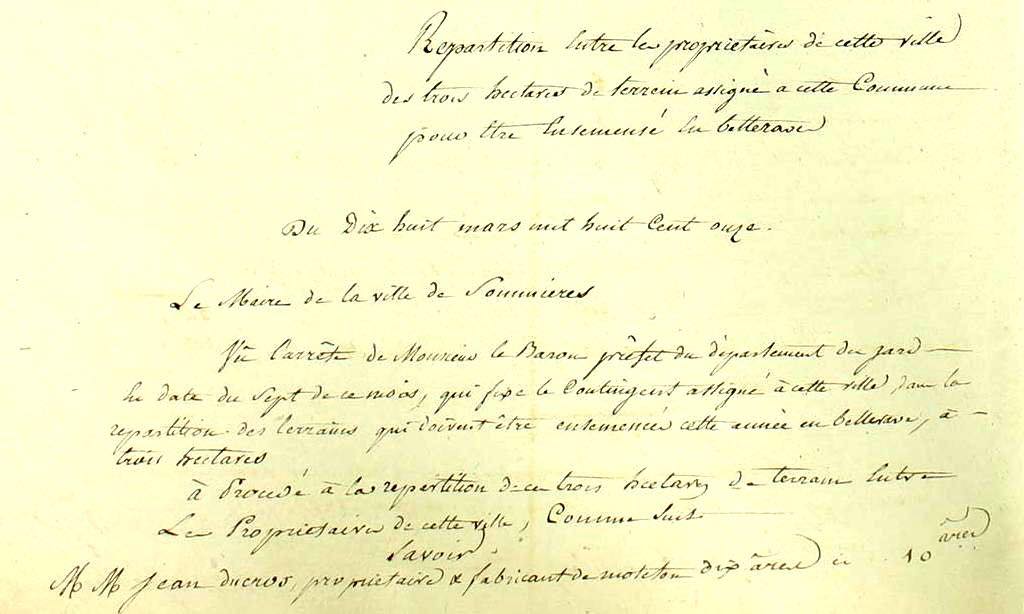 Repartition Entre les proprietaires de cette ville
des trois hectares de terrein assigné a cette Commune
pour Etre Ensemensé En betterave
Du Dix huit mars mil huit Cent onze.
Le Maire de la ville de Sommieres
Vû l'arrêté de Monsieur le Baron préfet du département du gard
En date du Sept de ce mois, qui fixe le Contingent assigné à cette ville, dans la
repartition des terrains qui doivent être ensemencés cette année en betterave, à
trois hectares
à Procedé à la repartition de ce trois hectares de terrain Entre
Les Proprietaires de cette ville, Comme Suit
Savoir
M M Jean ducros, proprietaire & fabricant de moleton dix ares ci 10 ares